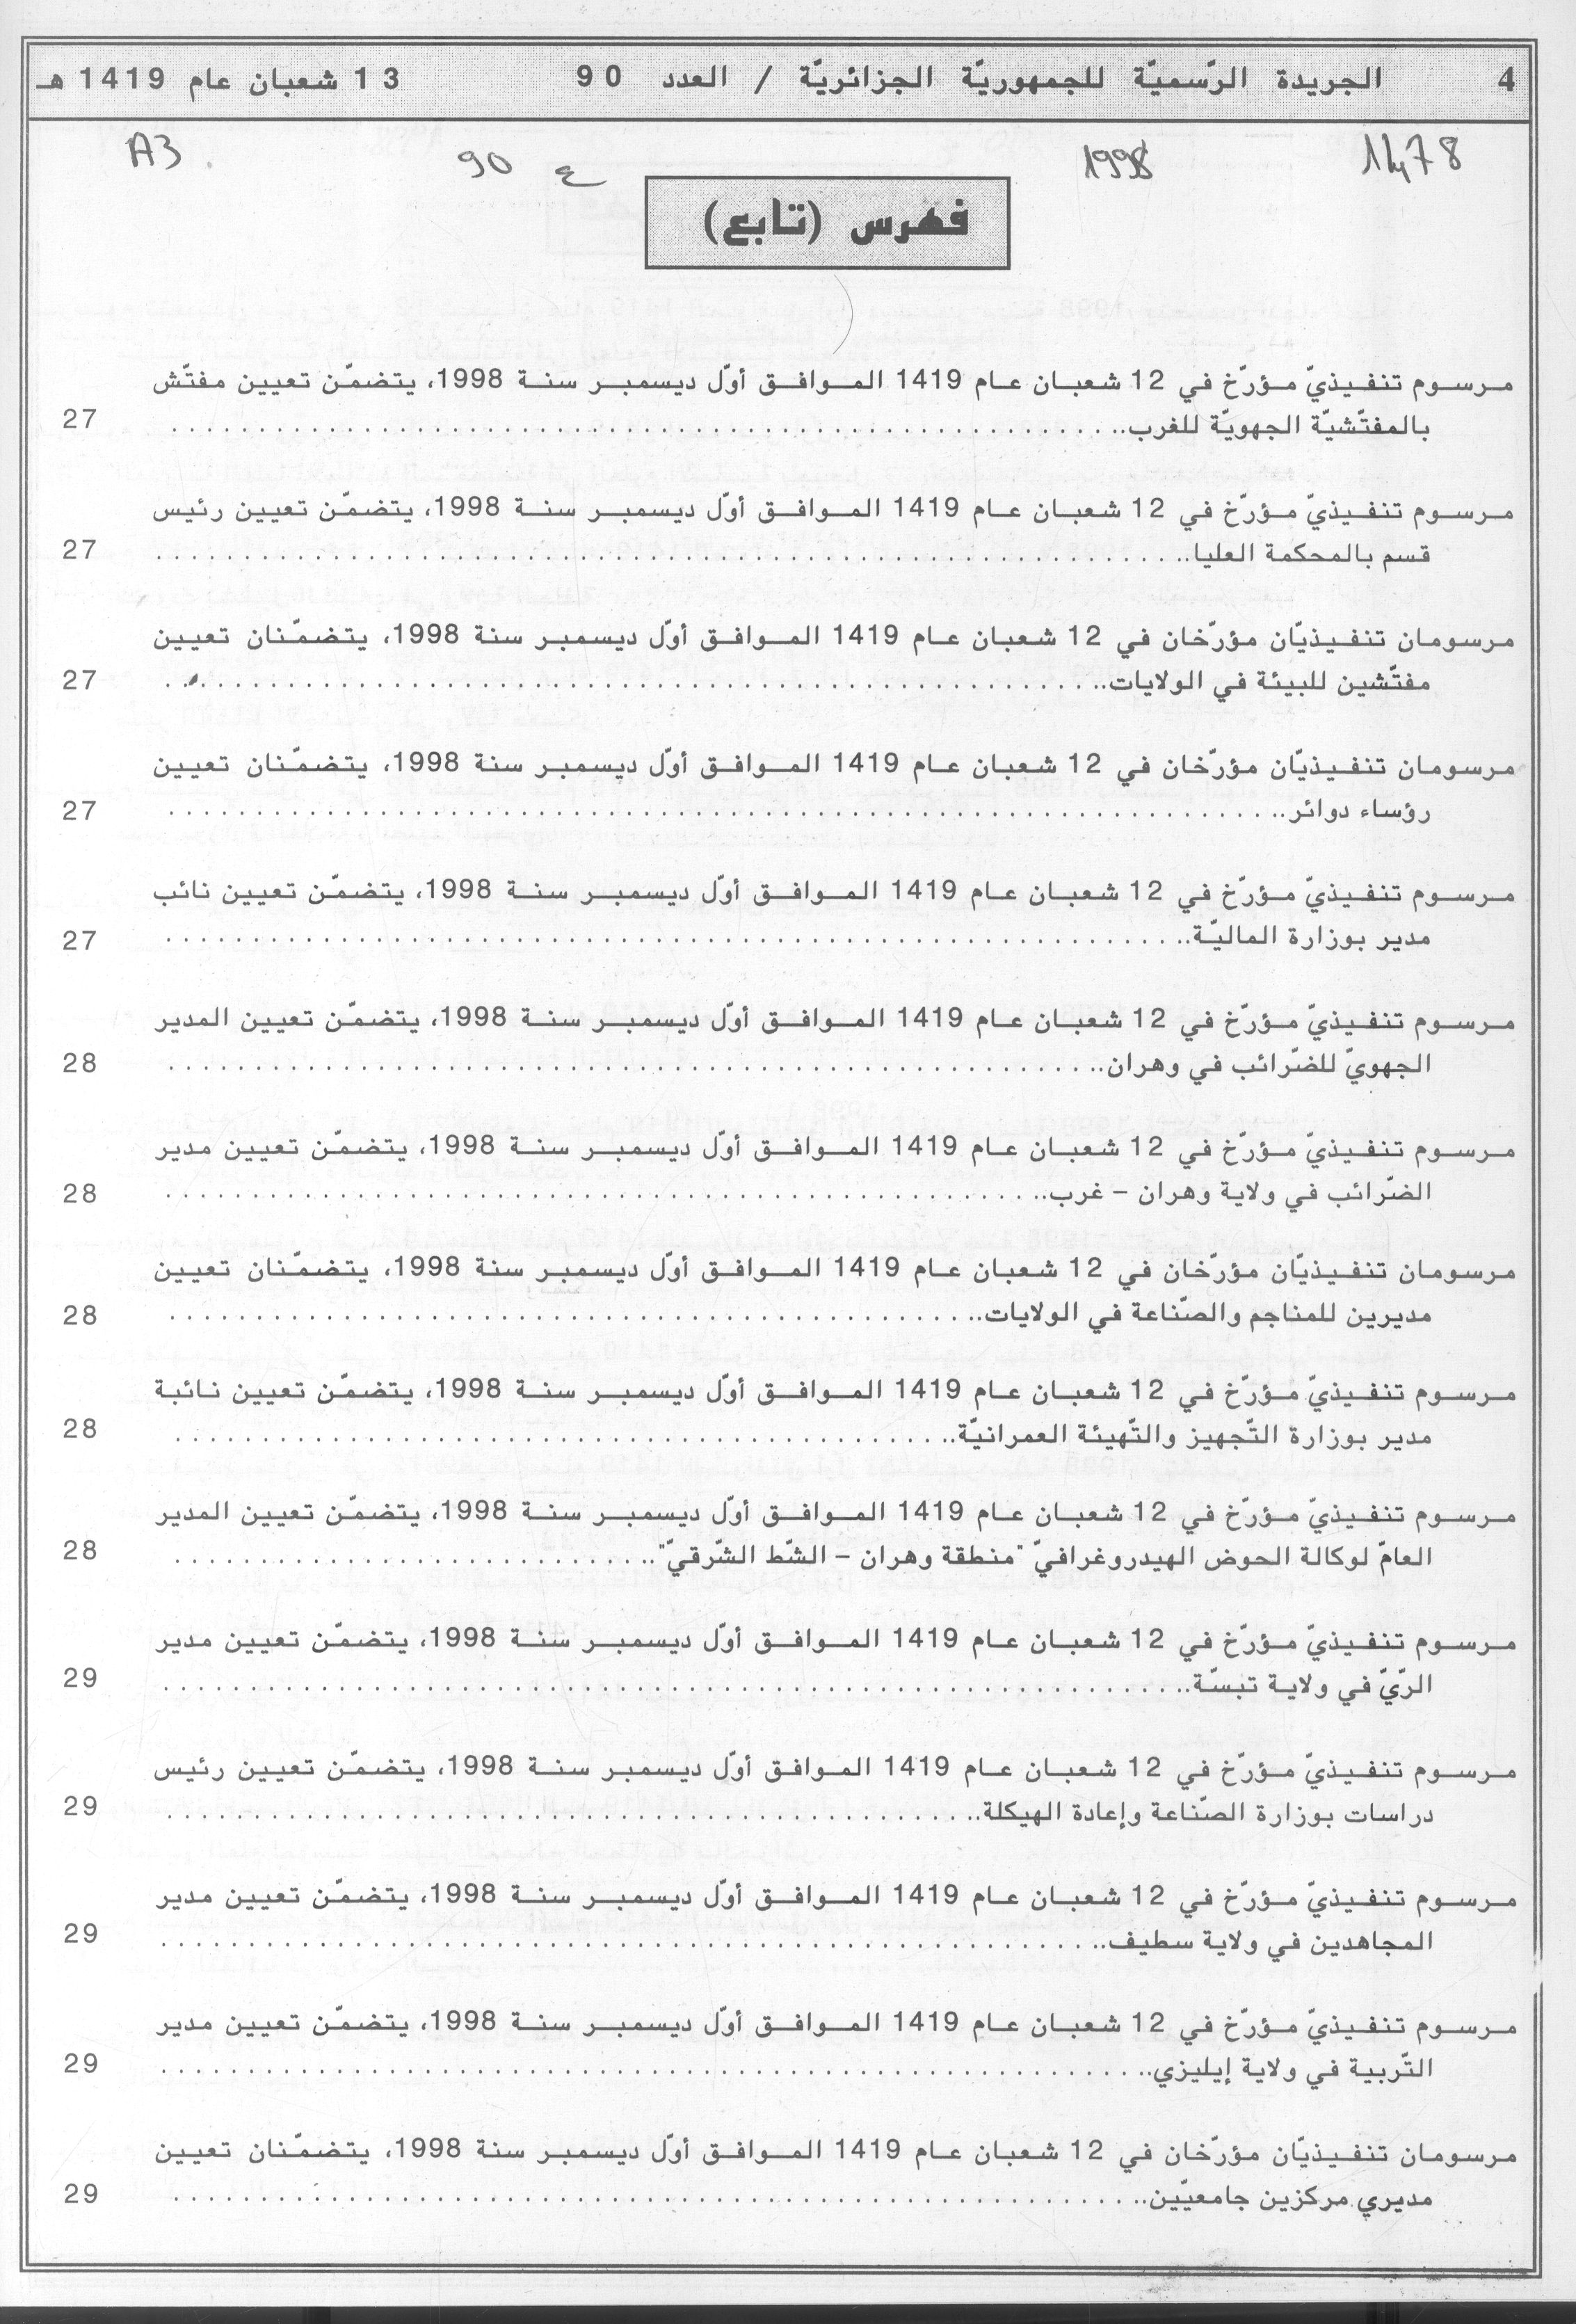 4 الجريدة الرّسميّة للجمهوريّة الجزائريّة / العدد 90 13 شعبان عام 1419 هـ
1478 1998 ع 90 A3
فهرس (تابع)
مرسوم تنفيذيّ مؤرّخ في 12 شعبان عام 1419 الموافق أوّل ديسمبر سنة 1998، يتضمّن تعيين مفتّش
بالمفتّشيّة الجهويّة للغرب.. 27
مرسوم تنفيذيّ مؤرّخ في 12 شعبان عام 1419 الموافق أوّل ديسمبر سنة 1998، يتضمّن تعيين رئيس
قسم بالمحكمة العليا.. 27
مرسومان تنفيذيّان مؤرّخان في 12 شعبان عام 1419 الموافق أوّل ديسمبر سنة 1998، يتضمّنان تعيين
مفتّشين للبيئة في الولايات.. 27
مرسومان تنفيذيّان مؤرّخان في 12 شعبان عام 1419 الموافق أوّل ديسمبر سنة 1998، يتضمّنان تعيين
رؤساء دوائر.. 27
مرسوم تنفيذيّ مؤرّخ في 12 شعبان عام 1419 الموافق أوّل ديسمبر سنة 1998، يتضمّن تعيين نائب
مدير بوزارة الماليّة.. 27
مرسوم تنفيذيّ مؤرّخ في 12 شعبان عام 1419 الموافق أوّل ديسمبر سنة 1998، يتضمّن تعيين المدير
الجهويّ للضّرائب في وهران.. 28
مرسوم تنفيذيّ مؤرّخ في 12 شعبان عام 1419 الموافق أوّل ديسمبر سنة 1998، يتضمّن تعيين مدير
الضّرائب في ولاية وهران – غرب.. 28
مرسومان تنفيذيّان مؤرّخان في 12 شعبان عام 1419 الموافق أوّل ديسمبر سنة 1998، يتضمّنان تعيين
مديرين للمناجم والصّناعة في الولايات.. 28
مرسوم تنفيذيّ مؤرّخ في 12 شعبان عام 1419 الموافق أوّل ديسمبر سنة 1998، يتضمّن تعيين نائبة
مدير بوزارة التّجهيز والتّهيئة العمرانيّة.. 28
مرسوم تنفيذيّ مؤرّخ في 12 شعبان عام 1419 الموافق أوّل ديسمبر سنة 1998، يتضمّن تعيين المدير
العامّ لوكالة الحوض الهيدروغرافيّ "منطقة وهران – الشّط الشّرقيّ".. 28
مرسوم تنفيذيّ مؤرّخ في 12 شعبان عام 1419 الموافق أوّل ديسمبر سنة 1998، يتضمّن تعيين مدير
الرّيّ في ولاية تبسّة.. 29
مرسوم تنفيذيّ مؤرّخ في 12 شعبان عام 1419 الموافق أوّل ديسمبر سنة 1998، يتضمّن تعيين رئيس
دراسات بوزارة الصّناعة وإعادة الهيكلة.. 29
مرسوم تنفيذيّ مؤرّخ في 12 شعبان عام 1419 الموافق أوّل ديسمبر سنة 1998، يتضمّن تعيين مدير
المجاهدين في ولاية سطيف.. 29
مرسوم تنفيذيّ مؤرّخ في 12 شعبان عام 1419 الموافق أوّل ديسمبر سنة 1998، يتضمّن تعيين مدير
التّربية في ولاية إيليزي.. 29
مرسومان تنفيذيّان مؤرّخان في 12 شعبان عام 1419 الموافق أوّل ديسمبر سنة 1998، يتضمّنان تعيين
مديري مركزين جامعيّين.. 29